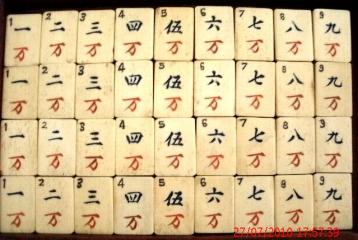 1 2 3 4 5 6 7 8 9
一 二 三 四 伍 六 七 八 九
万 万 万 万 万 万 万 万 万
1 2 3 4 5 6 7 8 9
一 二 三 四 伍 六 七 八 九
万 万 万 万 万 万 万 万 万
1 2 3 4 5 6 7 8 9
一 二 三 四 伍 六 七 八 九
万 万 万 万 万 万 万 万 万
1 2 3 4 5 6 7 8 9
一 二 三 四 伍 六 七 八 九
万 万 万 万 万 万 万 万 万
27/07/2010 17:57:39